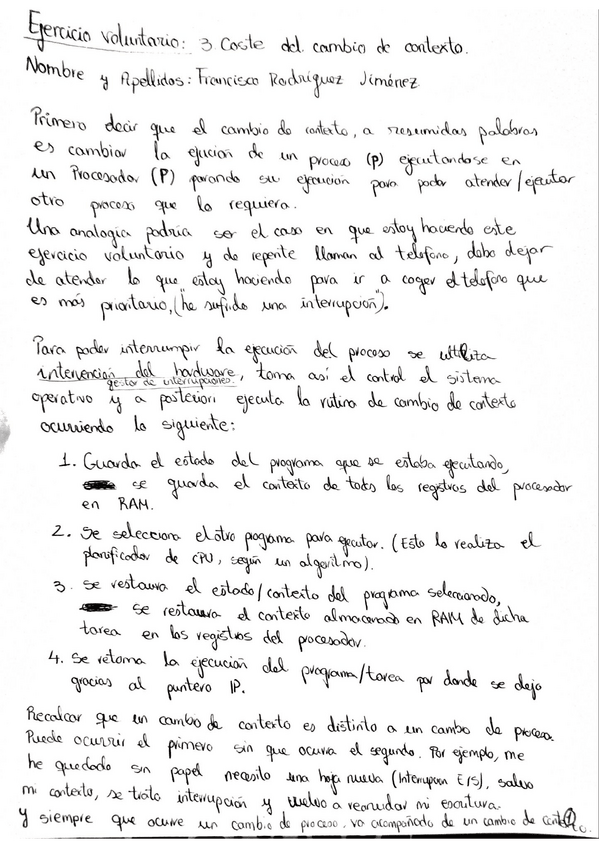 Ejercicio voluntario: 3 Coste del cambio de contexto.
Nombre y Apellidos: Francisco Rodríguez Jiménez
Primero decir que el cambio de contexto, a resumidas palabras
es cambiar la ejución de un proceso (p) ejecutandose en
un Procesador (P) parando su ejecución para poder atender/ejecutar
otro proceso que lo requiera.
Una analogía podría ser el caso en que estoy haciendo este
ejercicio voluntario y de repente llaman al telefono, debo dejar
de atender lo que estoy haciendo para ir a coger el telefono que
es más prioritario, (he sufrido una "interrupción").
Para poder interrumpir la ejecución del proceso se utiliza
intervención del hardware, toma así el control el sistema
gestor de interrupciones
operativo y a posteriori ejecuta la rutina de cambio de contexto
ocurriendo lo siguiente:
1. Guarda el estado del programa que se estaba ejecutando,
se guarda el contexto de todos los registros del procesador
en RAM.
2. Se selecciona el otro programa para ejecutar. (Esto lo realiza el
planificador de CPU, según un algoritmo).
3. Se restaura el estado/contexto del programa seleccionado,
se restaura el contexto almacenado en RAM de dicha
tarea en los registros del procesador.
4. Se retoma la ejecución del programa/tarea por donde se dejo
gracias al puntero IP.
Recalcar que un cambio de contexto es distinto a un cambio de proceso.
Puede ocurrir el primero sin que ocurra el segundo. Por ejemplo, me
he quedado sin papel necesito una hoja nueva (Interrupcion E/S), salvo
mi contexto, se trata interrupción y vuelvo a reanudar mi escritura.
y siempre que ocurre un cambio de proceso, va acompañado de un cambio de contexto.